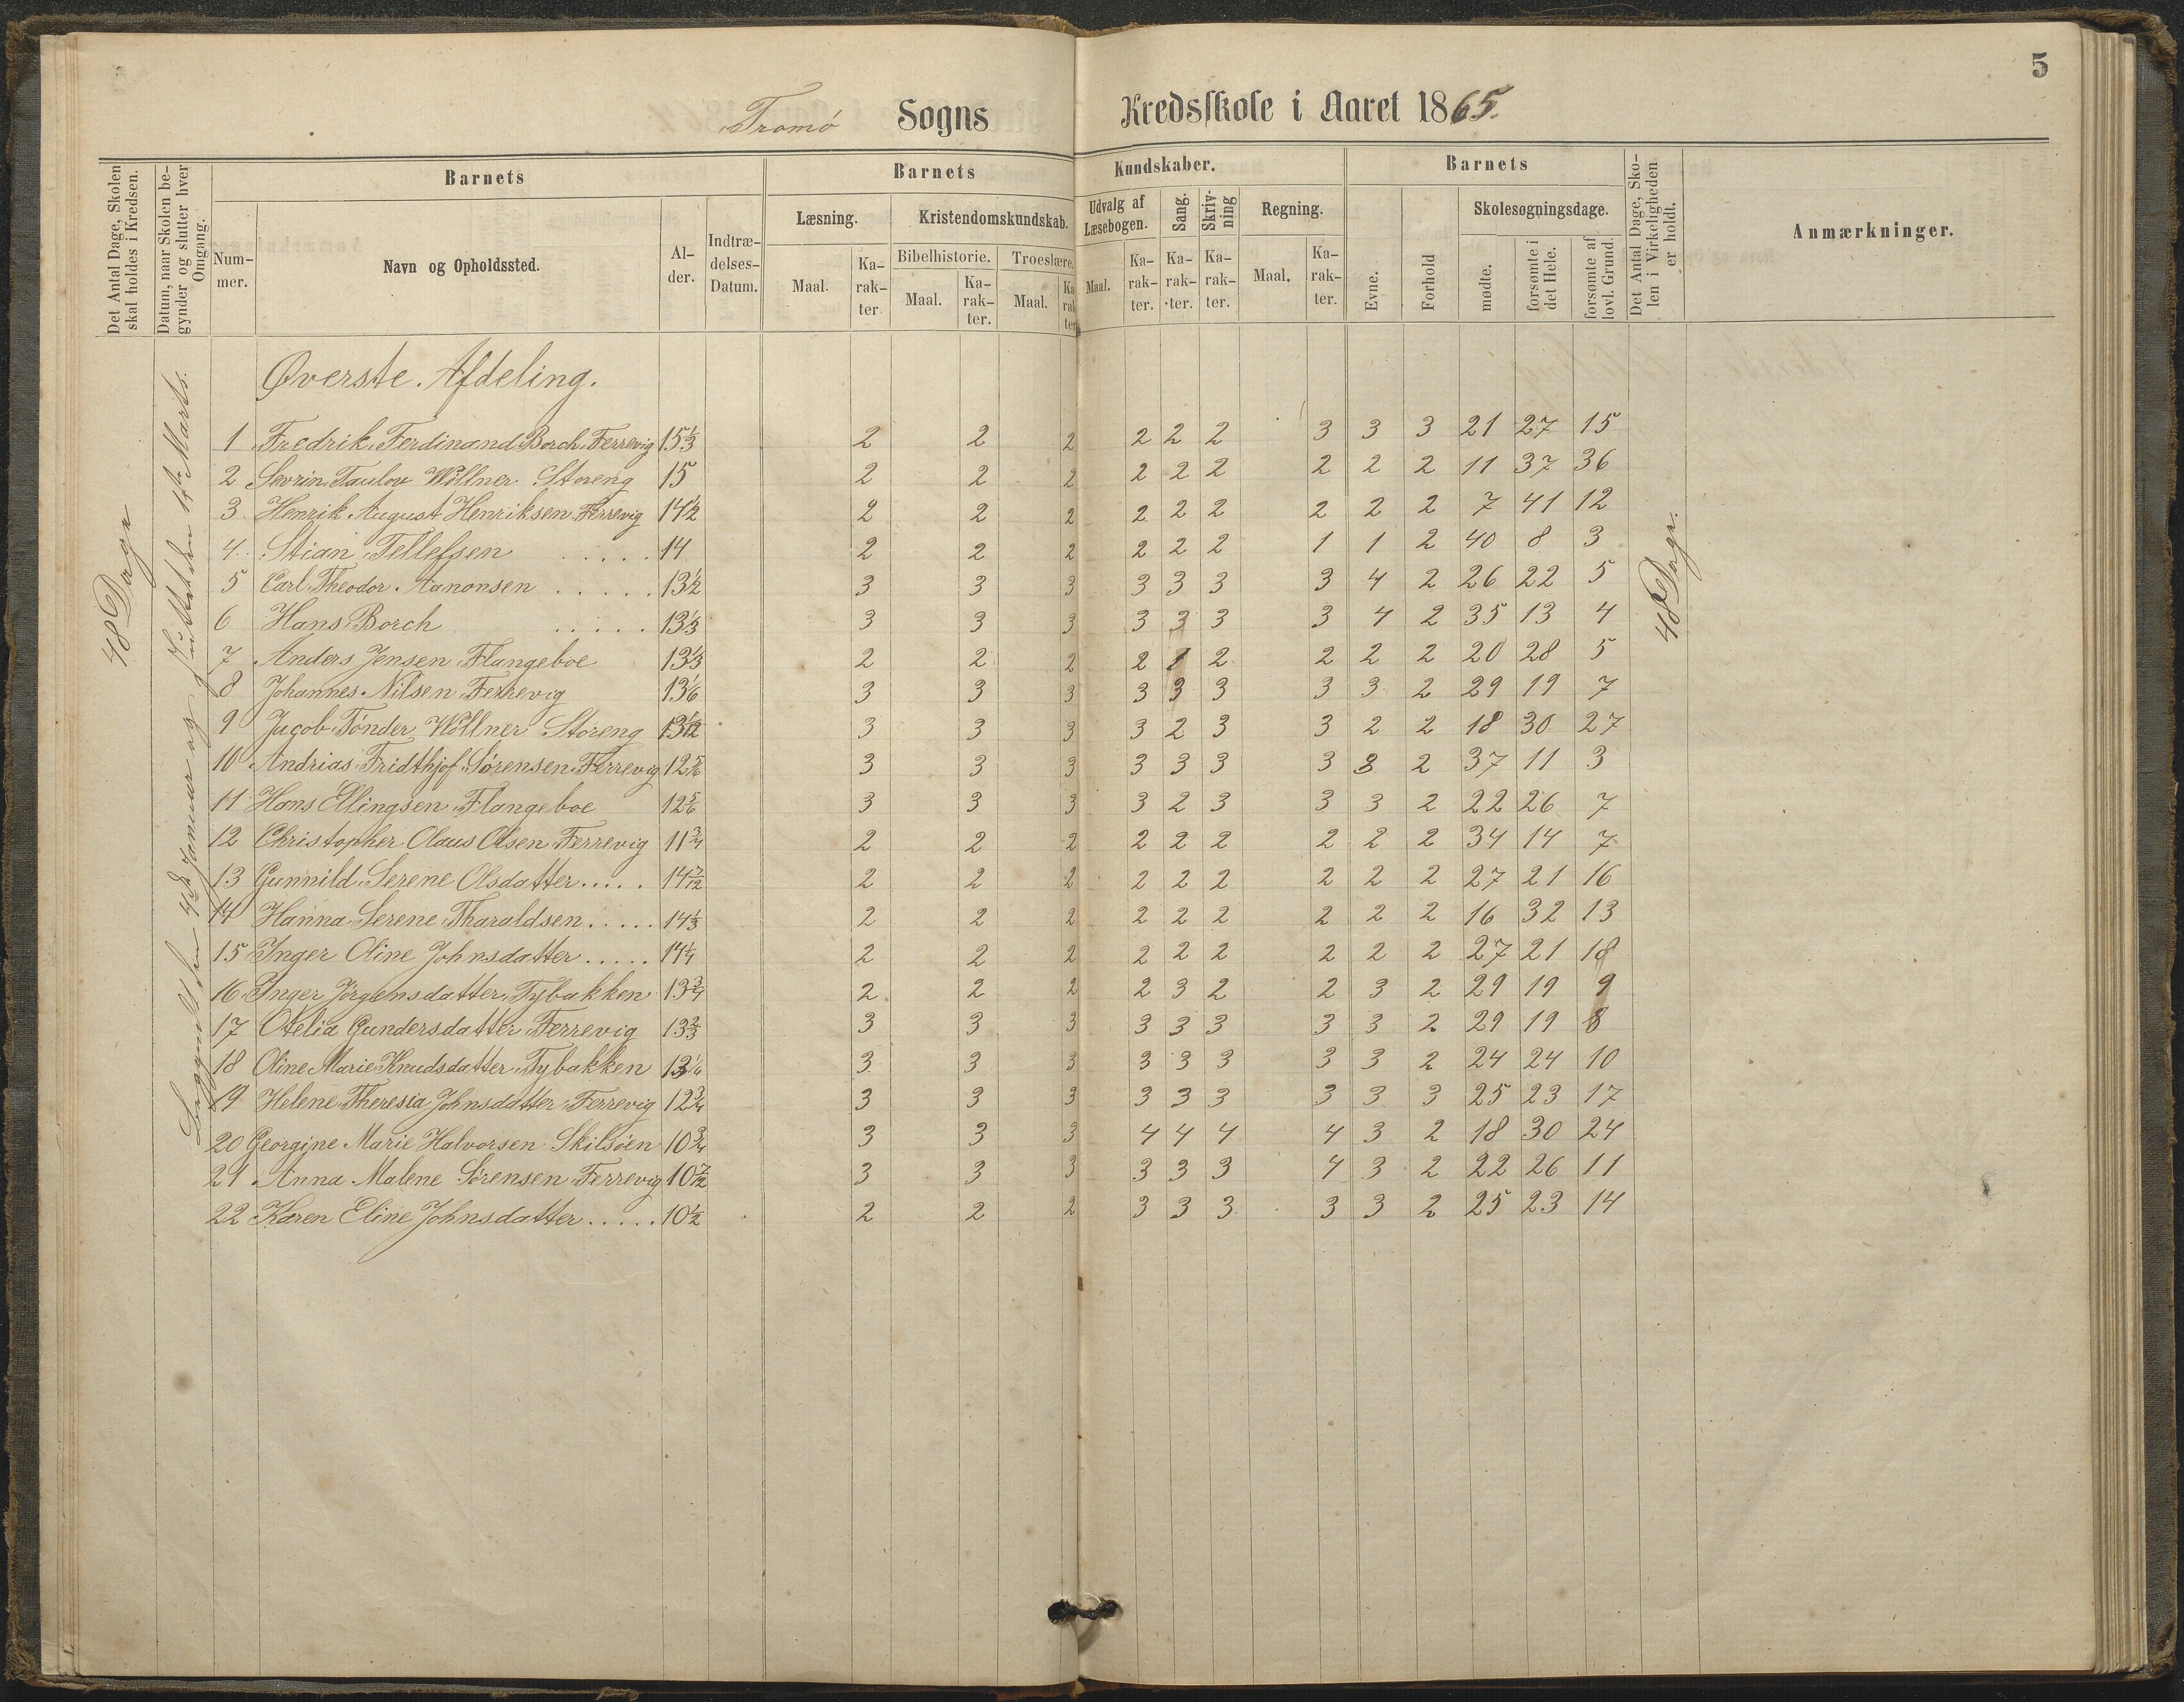 5
Tromø Sogns Kredsskole i Aaret 1865.
Det Antal Dage, Skolen skal holdes i Kredsen.
Datum, naar Skolen begynder og slutter hver Omgang.
Barnets
Barnets Kundskaber.
Barnets
Det Antal Dage, Skolen i Virkeligheden er holdt.
Anmærkninger.
Nummer.
Navn og Opholdssted.
Alder.
Indtrædelses-Datum.
Læsning.
Kristendomskundskab.
Udvalg af Læsebogen.
Sang.
Skrivning
Regning.
Evne.
Forhold
Skolesøgningsdage.
Bibelhistorie.
Troeslære.
Maal. Karakter. Maal. Karakter. Maal. Karakter Maal. Karakter. Karakter. Karakter. Maal. Karakter.
mødte. forsømte i det Hele. forsømte af lovl. Grund.
48 Dage
Begyndt den 4de Januar og sluttet den 14de Marts.
48 Dage.
Øverste Afdeling.
1 Fredrik Ferdinand Borch Færrevig 15 1/3 2 2 2 2 2 2 3 3 3 21 27 15
2 Sevrin Taulov Wöllner Støreng 15 2 2 2 2 2 2 2 2 2 11 37 36
3 Henrik August Henriksen Færrevig 14 1/2 2 2 2 2 2 2 2 2 2 7 41 12
4 Stian Tellefsen ..... 14 2 2 2 2 2 2 1 1 2 40 8 3
5 Carl Theodor Aanonsen ..... 13 1/2 3 3 3 3 3 3 3 4 2 26 22 5
6 Hans Borch ..... 13 1/3 3 3 3 3 3 3 3 4 2 35 13 4
7 Anders Jensen Flangeboe 13 1/3 2 2 2 2 1 2 2 2 2 20 28 5
8 Johannes Nilsen Færrevig 13 1/6 3 3 3 3 3 3 3 3 2 29 19 7
9 Jacob Tönder Wöllner Støreng 13 1/12 3 3 3 3 2 3 3 2 2 18 30 27
10 Andrias Fridthjof Sørensen Færrevig 12 5/6 3 3 3 3 3 3 3 3 2 37 11 3
11 Hans Ellingsen Flangeboe 12 5/6 3 3 3 3 2 3 3 3 2 22 26 7
12 Christopher Olaus Olsen Færrevig 11 3/4 2 2 2 2 2 2 2 2 2 34 14 7
13 Gunnild Serene Olsdatter ..... 14 7/12 2 2 2 2 2 2 2 2 2 27 21 16
14 Hanna Serene Tharaldsen ..... 14 1/3 2 2 2 2 2 2 2 2 2 16 32 13
15 Inger Oline Johnsdatter ..... 14 1/4 2 2 2 2 2 2 2 2 2 27 21 18
16 Inger Jörgensdatter Tybakken 13 3/4 2 2 2 2 3 2 2 3 2 29 19 9
17 Otelia Gundersdatter Færrevig 13 2/3 3 3 3 3 3 3 3 3 2 29 19 8
18 Oline Marie Knudsdatter Tybakken 13 1/6 3 3 3 3 3 3 3 3 2 24 24 10
19 Helene Theresia Johnsdatter Færrevig 12 3/4 3 3 3 3 3 3 3 3 3 25 23 17
20 Georgine Marie Halvorsen Skilsøen 10 3/4 3 3 3 4 4 4 4 3 2 18 30 24
21 Anna Malene Sørensen Færrevig 10 7/12 3 3 3 3 3 3 4 3 2 22 26 11
22 Karen Eline Johnsdatter ..... 10 1/2 2 2 2 3 3 3 3 3 2 25 23 14